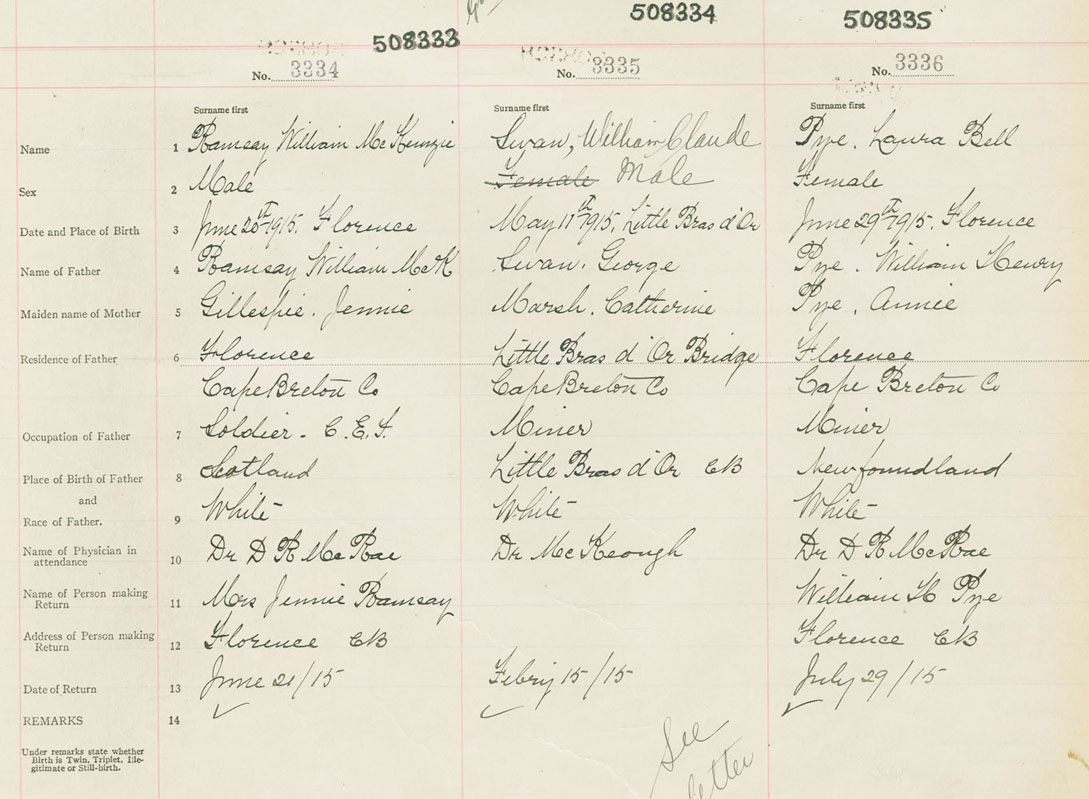 508333 508334 508335
No. 3334 No. 3335 No. 3336
Surname first Surname first Surname first
Name 1 Ramsay William McKenzie Swan, William Claude Pye. Laura Bell
Sex 2 Male Female Male Female
Date and Place of Birth 3 June 20th 1915. Florence May 11th 1915, Little Bras d'Or June 29th 1915. Florence
Name of Father 4 Ramsay William McK Swan. George Pye. William Henry
Maiden name of Mother 5 Gillespie. Jennie Marsh. Catherine Pye. Annie
Residence of Father 6 Florence Little Bras d'Or Bridge Florence
Cape Breton Co Cape Breton Co Cape Breton Co
Occupation of Father 7 Soldier - C.E.F. Miner Miner
Place of Birth of Father 8 Scotland Little Bras d'Or CB Newfoundland
and
Race of Father. 9 White White White
Name of Physician in attendance 10 Dr D R McRae Dr McKeough Dr D R McRae
Name of Person making Return 11 Mrs Jennie Ramsay William H Pye
Address of Person making Return 12 Florence CB Florence CB
Date of Return 13 June 21/15 Febry 15/15 July 29/15
REMARKS 14
Under remarks state whether
Birth is Twin, Triplet, Ille-
gitimate or Still-birth.
See
letter